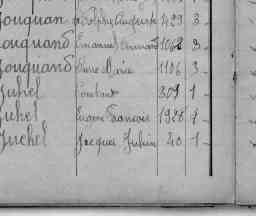 Jouquan Adolphe Auguste 429 3
Jouquand Emmanuel Armand 1062 3
Jouquand Pierre Marie 1106 3
Juhel Constant 351 1
Juhel Eugène François 1928 1
Juchel Jacques Julien 40 1